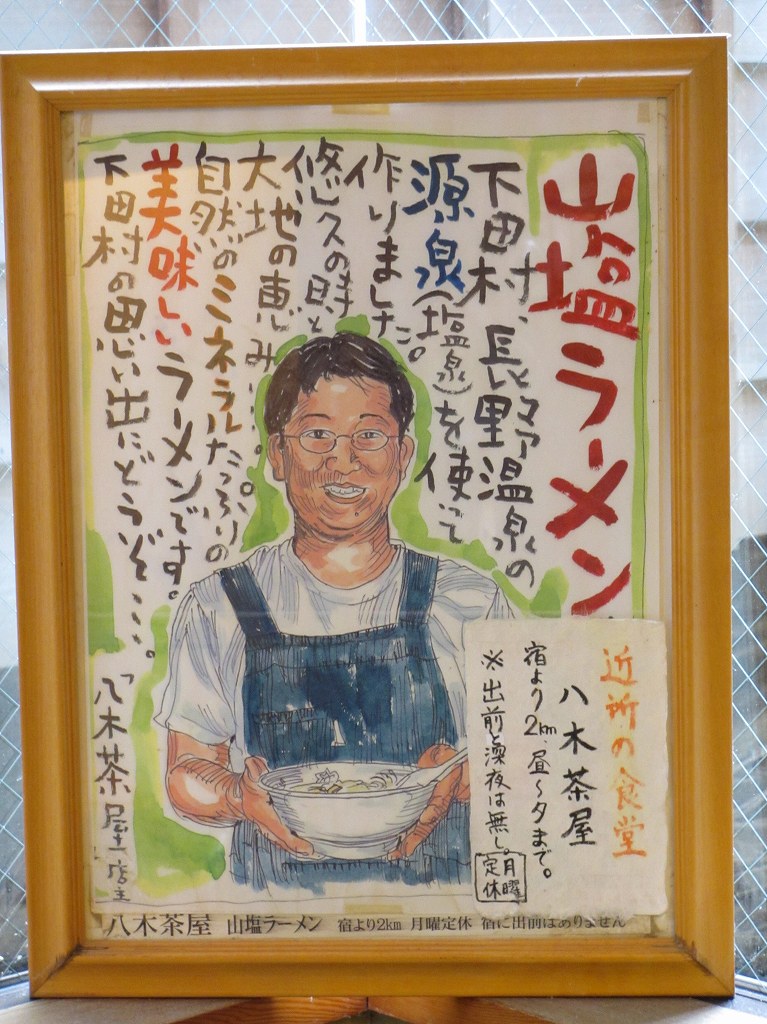 山の塩ラーメン
下田村、長野温泉の
源泉(塩泉)を使って
作りました。
悠久の時と
大地の恵み…。
自然のミネラルたっぷりの
美味しいラーメンです。
下田村の思い出にどうぞ…。
「八木茶屋」店主
近所の食堂
八木茶屋
宿より2km。昼〜夕まで。
※出前と深夜は無し。
月曜
定休
八木茶屋 山塩ラーメン 宿より2km 月曜定休 宿に出前はありません